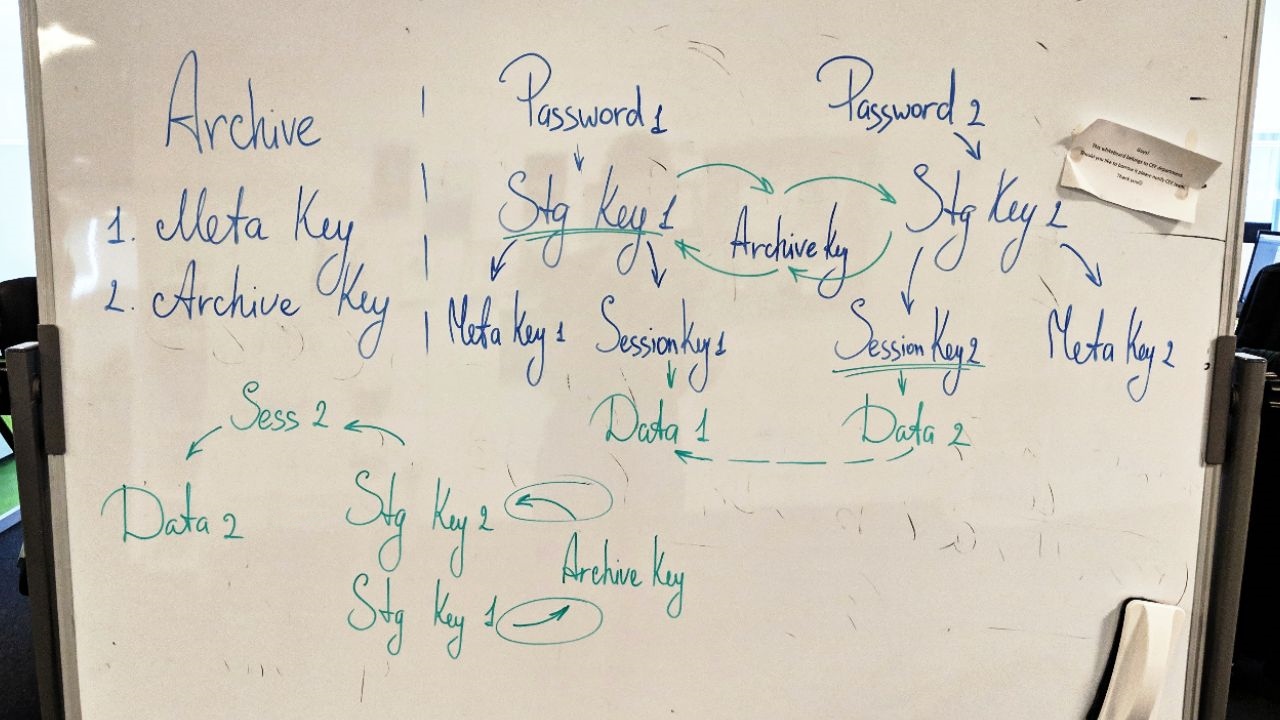 Archive
1. Meta Key
2. Archive Key
Password 1
Password 2
Stg Key 1
Archive Key
Stg Key 2
Meta Key 1
Session Key 1
Session Key 2
Meta Key 2
Data 1
Data 2
Sess 2
Data 2
Stg Key 2
Archive Key
Stg Key 1
Guys!
This whiteboard belongs to department.
Should you like to borrow it please notify team.
Thank you!